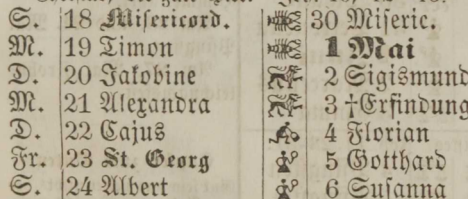 S. 18 Misericord. 30 Miseric.
M. 19 Timon 1 Mai
D. 20 Jakobine 2 Sigismund
M. 21 Alexandra 3 †Erfindung
D. 22 Cajus 4 Florian
Fr. 23 St. Georg 5 Gotthard
S. 24 Albert 6 Susanna